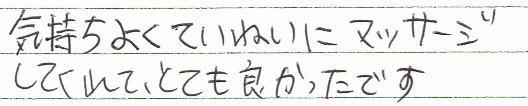 気持ちよくていねいにマッサージ
してくれて、とても良かったです